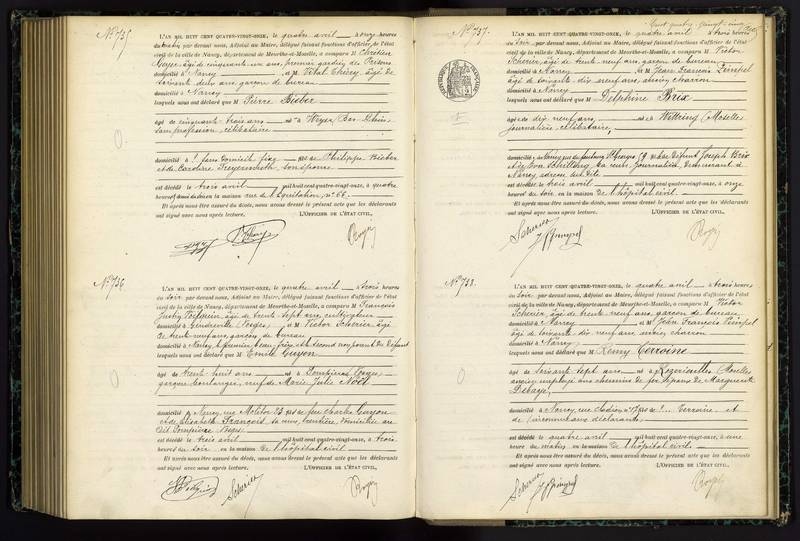 N° 735.
L'AN MIL HUIT CENT QUATRE-VINGT-ONZE, le quatre avril à onze heures
du matin par devant nous, Adjoint au Maire, délégué faisant fonctions d'officier de l'état
civil de la ville de Nancy, département de Meurthe-et-Moselle, a comparu M Chrétien
âgé de cinquante un ans, premier gardien des Prisons
domicilié à Nancy à M Vital Thiéry, âgé de
soixante deux ans, garçon de bureau
domicilié à Nancy
lesquels nous ont déclaré que M Pierre Bieber
âgé de cinquante trois ans né à Weyer (Bas-Rhin)
sans profession, célibataire
domicilié à sans domicile fixe fils de Philippe Bieber
et de Caroline son épouse
est décédé le trois avril mil huit cent quatre-vingt-onze, à quatre
heures du en la maison rue de l'Equitation, n° 66.
Et après nous être assuré du décès, nous avons dressé le présent acte que les déclarants
ont signé avec nous après lecture. L'OFFICIER DE L'ÉTAT CIVIL,
N° 736.
L'AN MIL HUIT CENT QUATRE-VINGT-ONZE, le quatre avril à trois heures
du soir par devant nous, Adjoint au Maire, délégué faisant fonctions d'officier de l'état
civil de la ville de Nancy, département de Meurthe-et-Moselle, a comparu M François
âgé de trente sept ans, cultivateur
domicilié à Gendreville (Vosges) à M Victor Scherier, âgé
de trente neuf ans, garçon de bureau
domicilié à Nancy, le premier beau-frère et le second non parent du défunt
lesquels nous ont déclaré que M Emile Guyon
âgé de trente huit ans né à Dompierre (Vosges)
garçon boulanger, veuf de Marie Julie Noël
domicilié à Nancy, rue Molitor fils de feu Charles Guyon
et de Elisabeth François, sa veuve, domiciliée au
dit Dompierre Vosges
est décédé le trois avril mil huit cent quatre-vingt-onze, à trois
heures du soir en la maison de l'hôpital civil
Et après nous être assuré du décès, nous avons dressé le présent acte que les déclarants
ont signé avec nous après lecture. L'OFFICIER DE L'ÉTAT CIVIL,
Scherier
Cent quatre-vingt-cinq
N° 737.
L'AN MIL HUIT CENT QUATRE-VINGT-ONZE, le quatre avril à trois heures
du soir par devant nous, Adjoint au Maire, délégué faisant fonctions d'officier de l'état
civil de la ville de Nancy, département de Meurthe-et-Moselle, a comparu M Victor
Scherier, âgé de trente neuf ans, garçon de bureau
domicilié à Nancy et M Jean François
âgé de soixante dix neuf ans, ancien charron
domicilié à Nancy
lesquels nous ont déclaré que M Delphine Brix
âgé de dix neuf ans, né à Wittring (Moselle)
journalière, célibataire,
domicilié à Nancy rue du faubourg St Georges 59 de défunt Joseph Brix
et de sa veuve journalière, demeurant à
Nancy,
est décédé le trois avril mil huit cent quatre-vingt-onze, à onze
heures du soir, en la maison de l'hôpital civil.
Et après nous être assuré du décès, nous avons dressé le présent acte que les déclarants
ont signé avec nous après lecture. L'OFFICIER DE L'ÉTAT CIVIL,
Scherier
N° 738.
L'AN MIL HUIT CENT QUATRE-VINGT-ONZE, le quatre avril à trois heures
du soir par devant nous, Adjoint au Maire, délégué faisant fonctions d'officier de l'état
civil de la ville de Nancy, département de Meurthe-et-Moselle, a comparu M Victor
Scherier, âgé de trente neuf ans, garçon de bureau
domicilié à Nancy et M Jean François
âgé de soixante dix neuf ans ancien charron
domicilié à Nancy
lesquels nous ont déclaré que M Remy Verroine
âgé de soixante sept ans né à Rozérieulles (Moselle)
ancien employé aux chemins de fer, époux de Marguerite
domicilié à Nancy, rue fils de ! ... Verroine et
de (inconnus aux déclarants)
est décédé le quatre avril mil huit cent quatre-vingt-onze, à une
heure du matin en la maison de l'hôpital civil.
Et après nous être assuré du décès, nous avons dressé le présent acte que les déclarants
ont signé avec nous après lecture. L'OFFICIER DE L'ÉTAT CIVIL,
Scherier